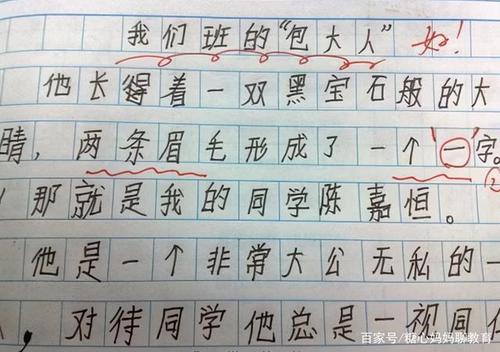 我们班的“包大人” 好!
他长得着一双黑宝石般的大
睛,两条眉毛形成了一个'一'字。
那就是我的同学陈嘉恒。
他是一个非常大公无私的一
,对待同学他总是一视同
百家号/糖心妈妈聊教育